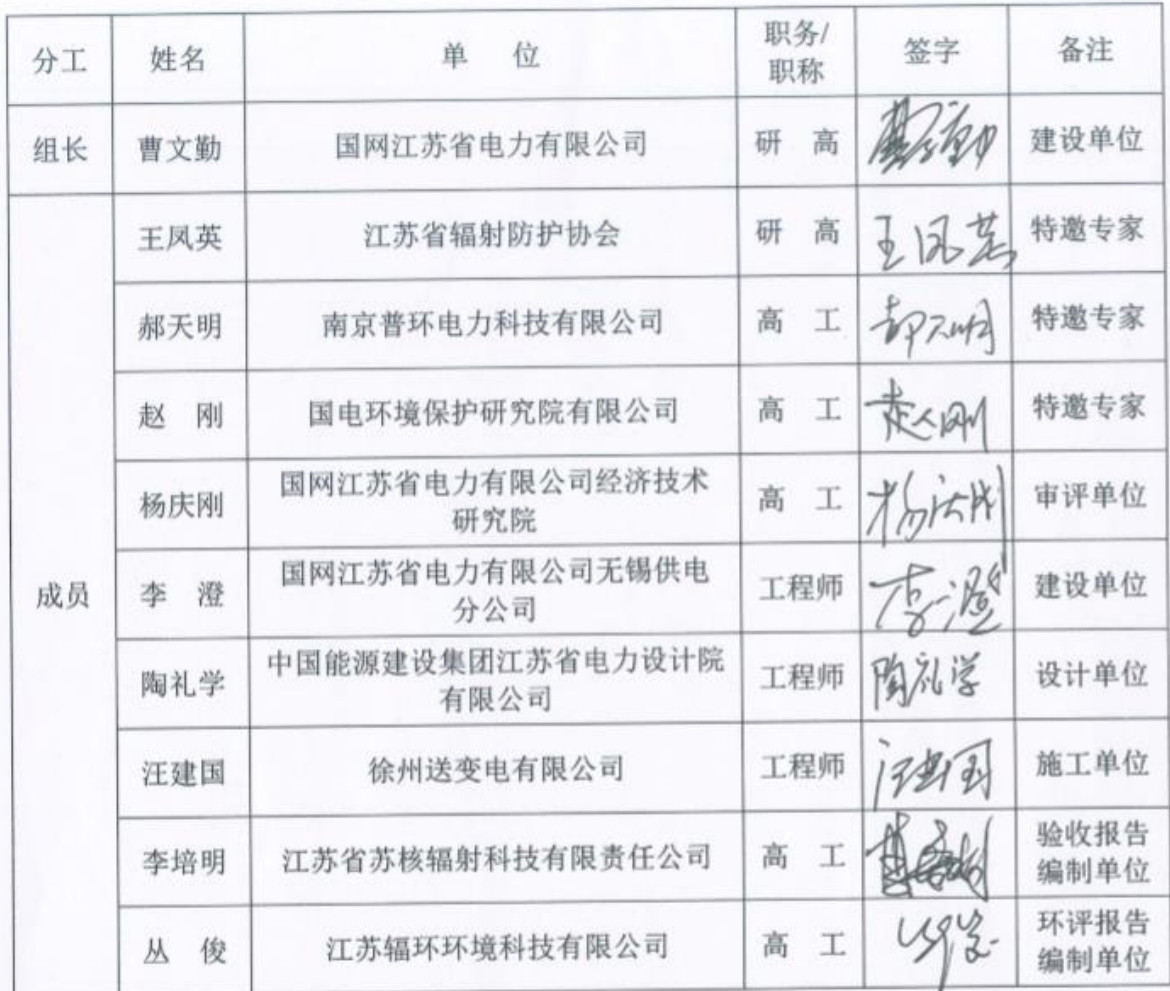 分工 姓名 单 位 职务/职称 签字 备注
组长 曹文勤 国网江苏省电力有限公司 研 高 曹文勤 建设单位
成员 王凤英 江苏省辐射防护协会 研 高 王凤英 特邀专家
郝天明 南京普环电力科技有限公司 高 工 郝天明 特邀专家
赵 刚 国电环境保护研究院有限公司 高 工 赵刚 特邀专家
杨庆刚 国网江苏省电力有限公司经济技术研究院 高 工 杨庆刚 审评单位
李 澄 国网江苏省电力有限公司无锡供电分公司 工程师 李澄 建设单位
陶礼学 中国能源建设集团江苏省电力设计院有限公司 工程师 陶礼学 设计单位
汪建国 徐州送变电有限公司 工程师 汪建国 施工单位
李培明 江苏省苏核辐射科技有限责任公司 高 工 验收报告编制单位
丛 俊 江苏辐环环境科技有限公司 高 工 丛俊 环评报告编制单位